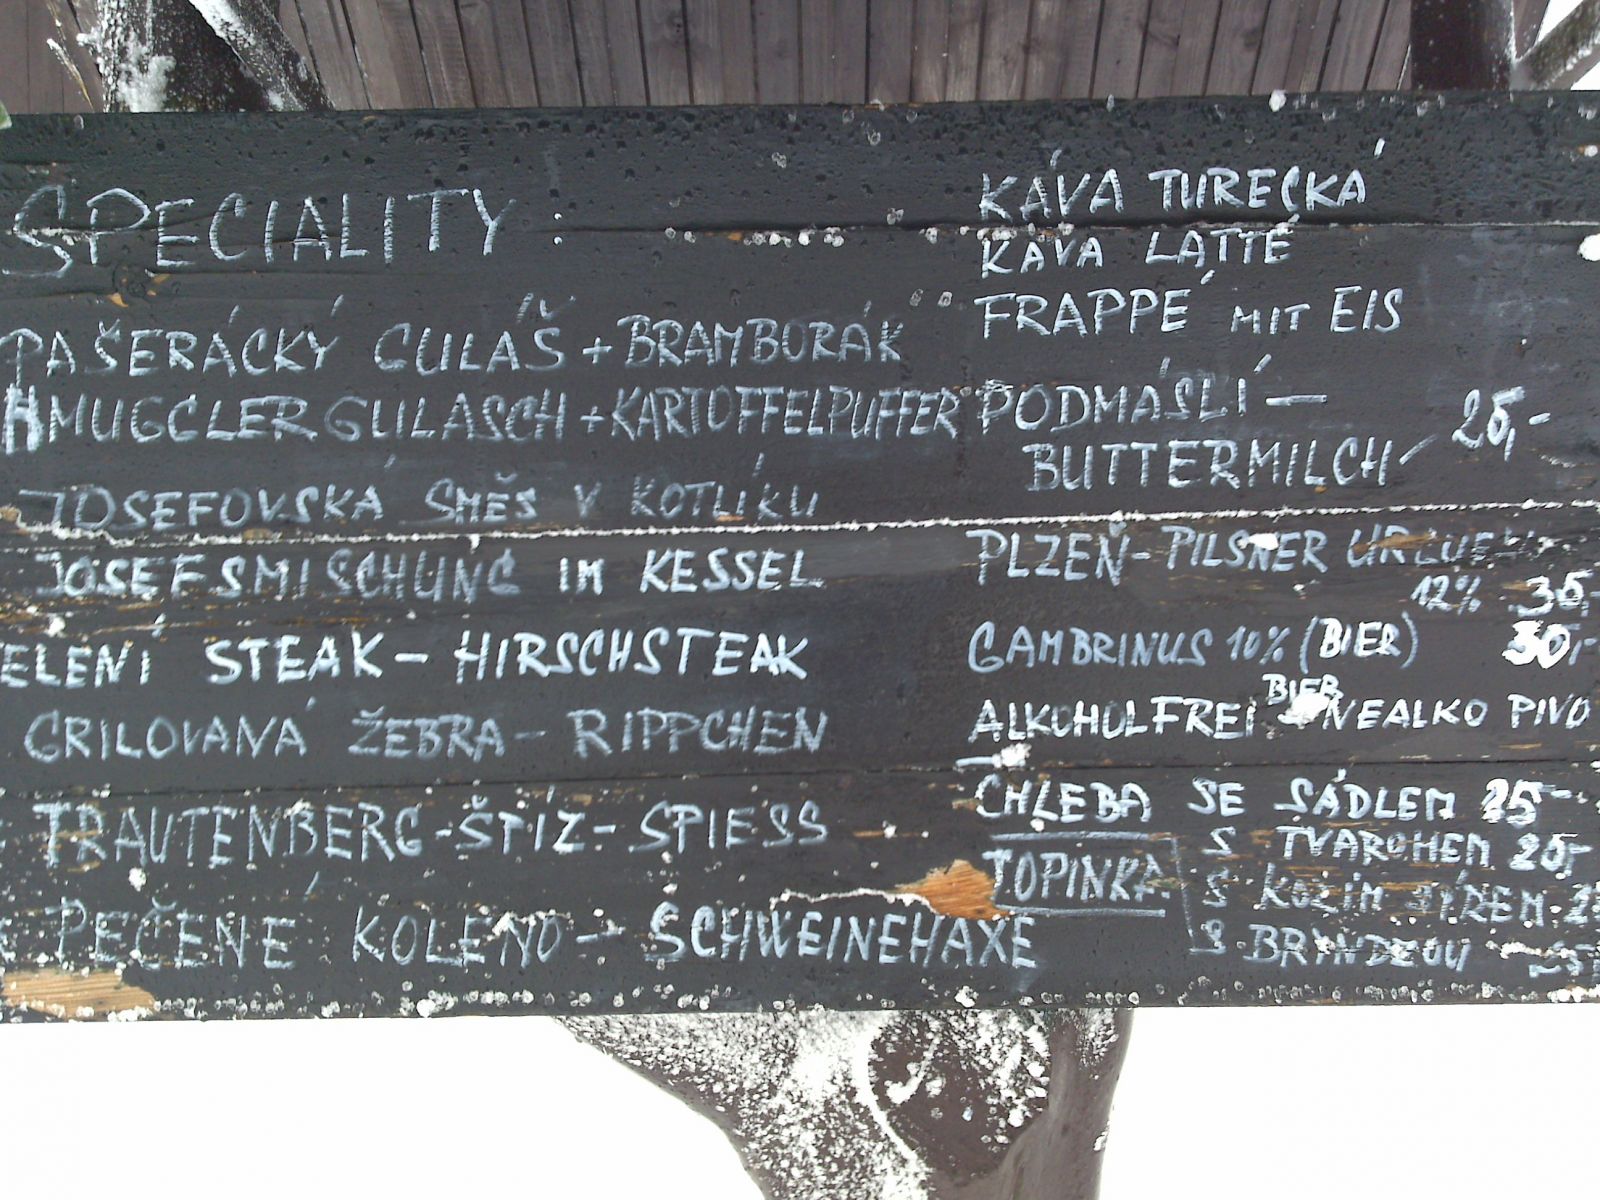 SPECIALITY :
PAŠERÁCKÝ GULÁŠ + BRAMBORÁK
HMUGGLERGULASCH + KARTOFFELPUFFER
JOSEFOVSKÁ SMĚS V KOTLÍKU
JOSEFSMISCHUNG IM KESSEL
ELENÍ STEAK - HIRSCHSTEAK
GRILOVANÁ ŽEBRA - RIPPCHEN
TRAUTENBERG - ŠTÍZ - SPIESS
PEČENÉ KOLENO - SCHWEINEHAXE
KÁVA TURECKÁ
KÁVA LATTÉ
FRAPPÉ MIT EIS
PODMÁSLÍ —
BUTTERMILCH 25,-
PLZEŇ - PILSNER
12% 35,-
GAMBRINUS 10% (BIER) 30,-
ALKOHOLFREI BIER NEALKO PIVO
CHLEBA SE SÁDLEM 25-
S TVAROHEM 25,-
TOPINKA S KOZÍM SÝREM
S BRYNDZOU